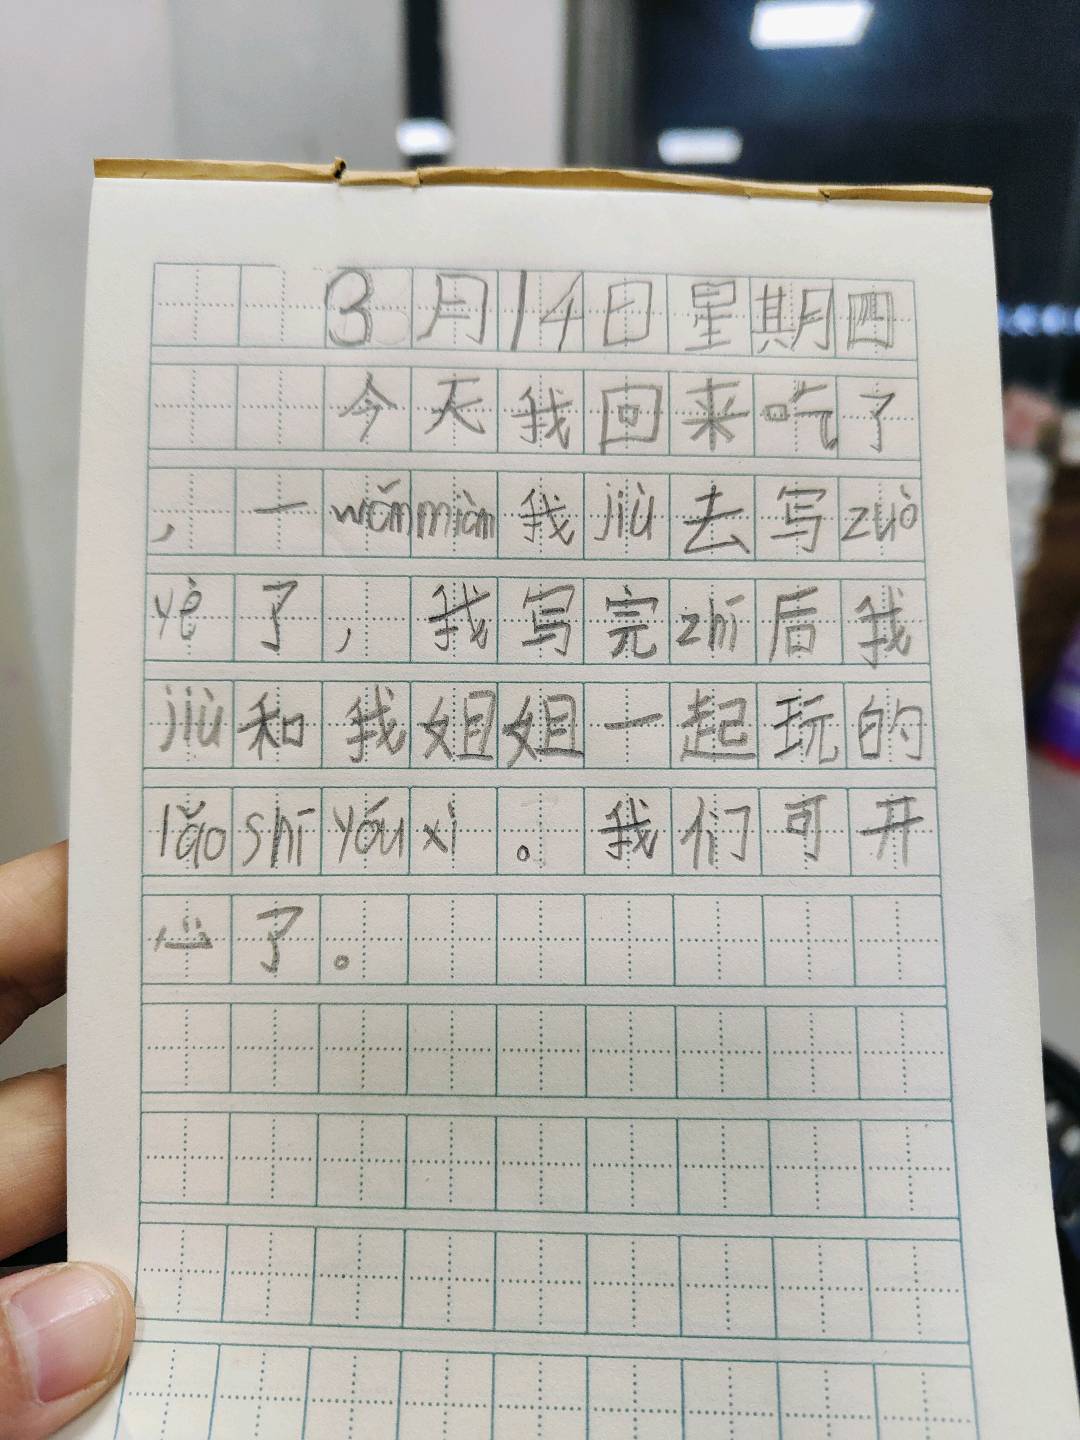 3月14日星期四
今天我回来吃了
，一wǎnmiàn我jiù去写zuò
yè了，我写完zhī后我
jiù和我姐姐一起玩的
lǎoshīyóuxì。我们可开
心了。